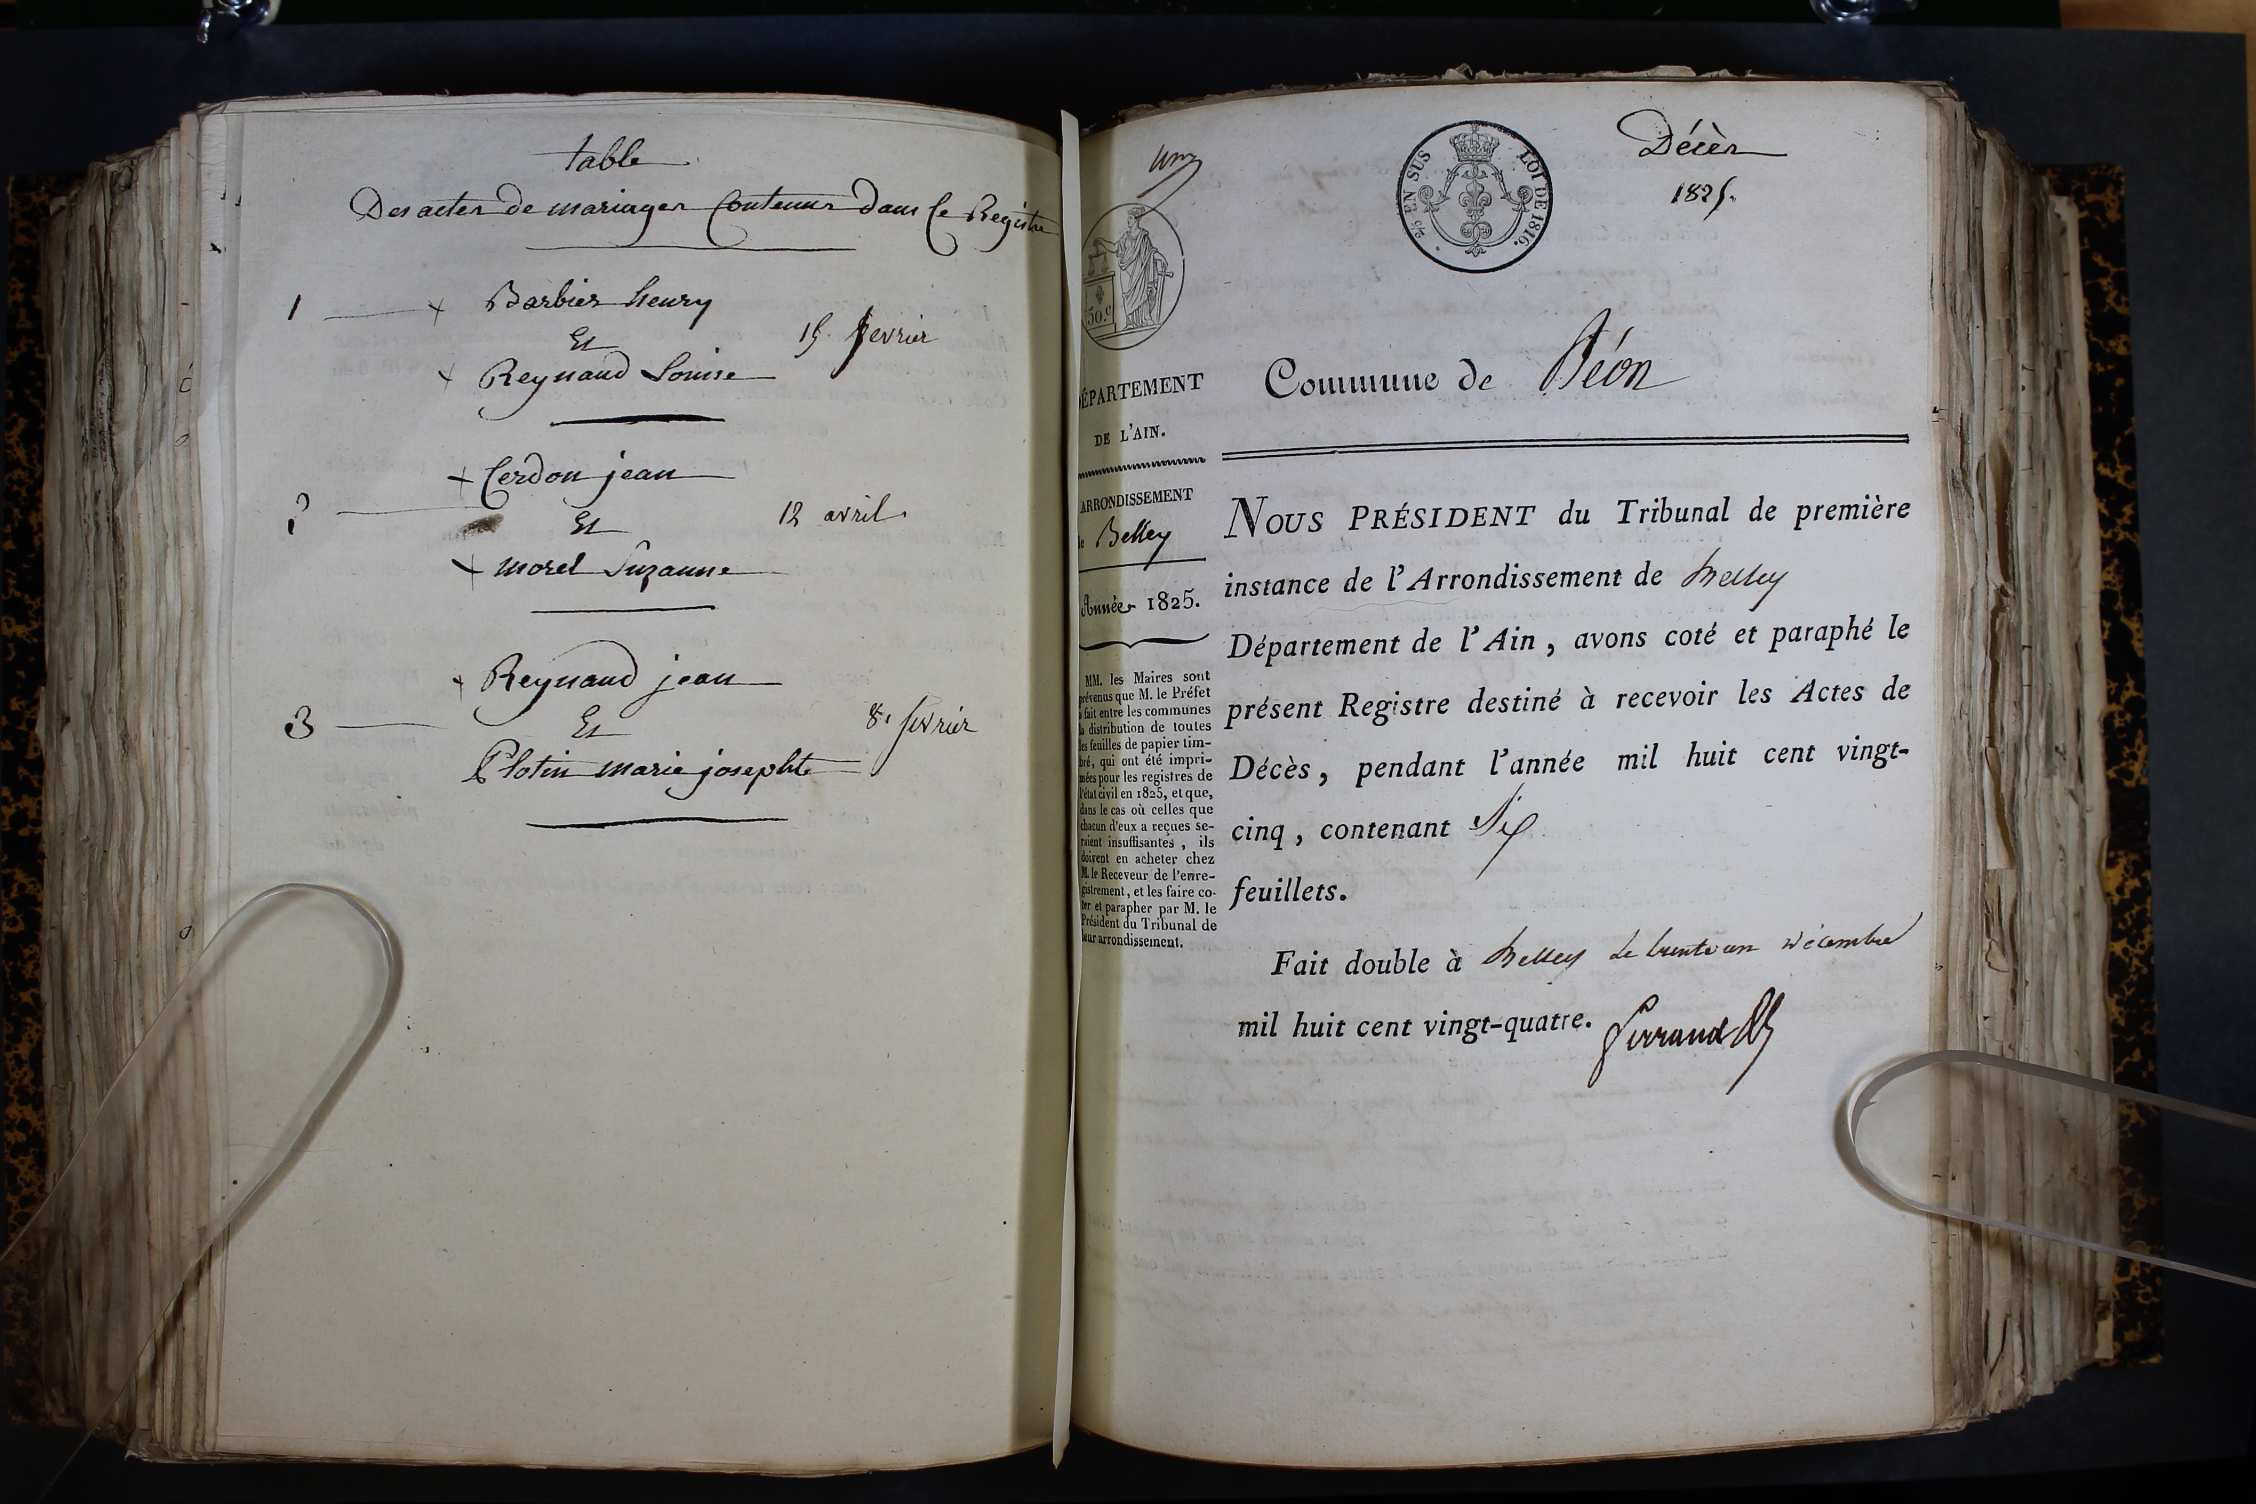 table
Des actes de mariages Contenus dans Ce Registre
1 + Barbier henry
Et 15. fevrier
+ Reynaud Louise
+ Cerdon jean
2 Et 12 avril.
+ morel Suzanne
+ Reynaud jean
3 Et 8. fevrier
Plotin marie josephte
un
Décès
1825.
2/5 EN SUS LOI DE 1816.
50.c
DÉPARTEMENT
DE L'AIN.
ARRONDISSEMENT
de Belley
Année 1825.
MM. les Maires sont
prévenus que M. le Préfet
a fait entre les communes
la distribution de toutes
les feuilles de papier tim-
bré, qui ont été impri-
mées pour les registres de
l'état civil en 1825, et que,
dans le cas où celles que
chacun d'eux a reçues se-
raient insuffisantes, ils
doivent en acheter chez
M. le Receveur de l'enre-
gistrement, et les faire co-
ter et parapher par M. le
Président du Tribunal de
leur arrondissement.
Commune de Béon
NOUS PRÉSIDENT du Tribunal de première
instance de l'Arrondissement de belley
Département de l'Ain, avons coté et paraphé le
présent Registre destiné à recevoir les Actes de
Décès, pendant l'année mil huit cent vingt-
cinq, contenant Six
feuillets.
Fait double à belley le trente un décembre
mil huit cent vingt-quatre.